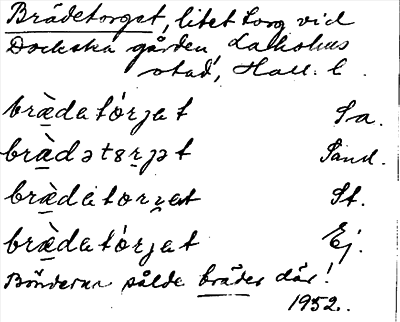 Brädetorget, litet torg vid
Dockska gården, Laholms
stad, Hall. l.
bræ̀datórjat Sa.
bræ̀dətɛrjət Sand.
bræ̀datorjat St.
bræ̀datórjat Ej.
Bönderna sålde bräder där!
1952.